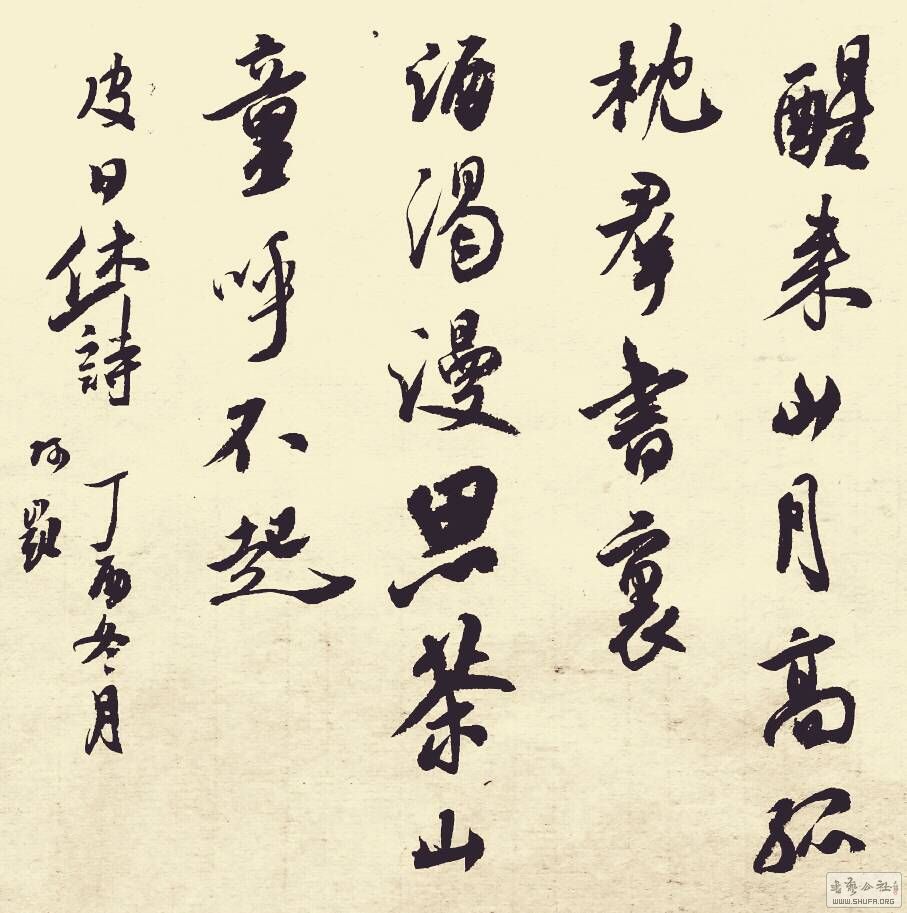 醒来山月高孤
枕群书里
酒渴漫思茶山
童呼不起
皮日休詩
丁酉冬月
阿凱
書藝公社
WWW.SHUFA.ORG